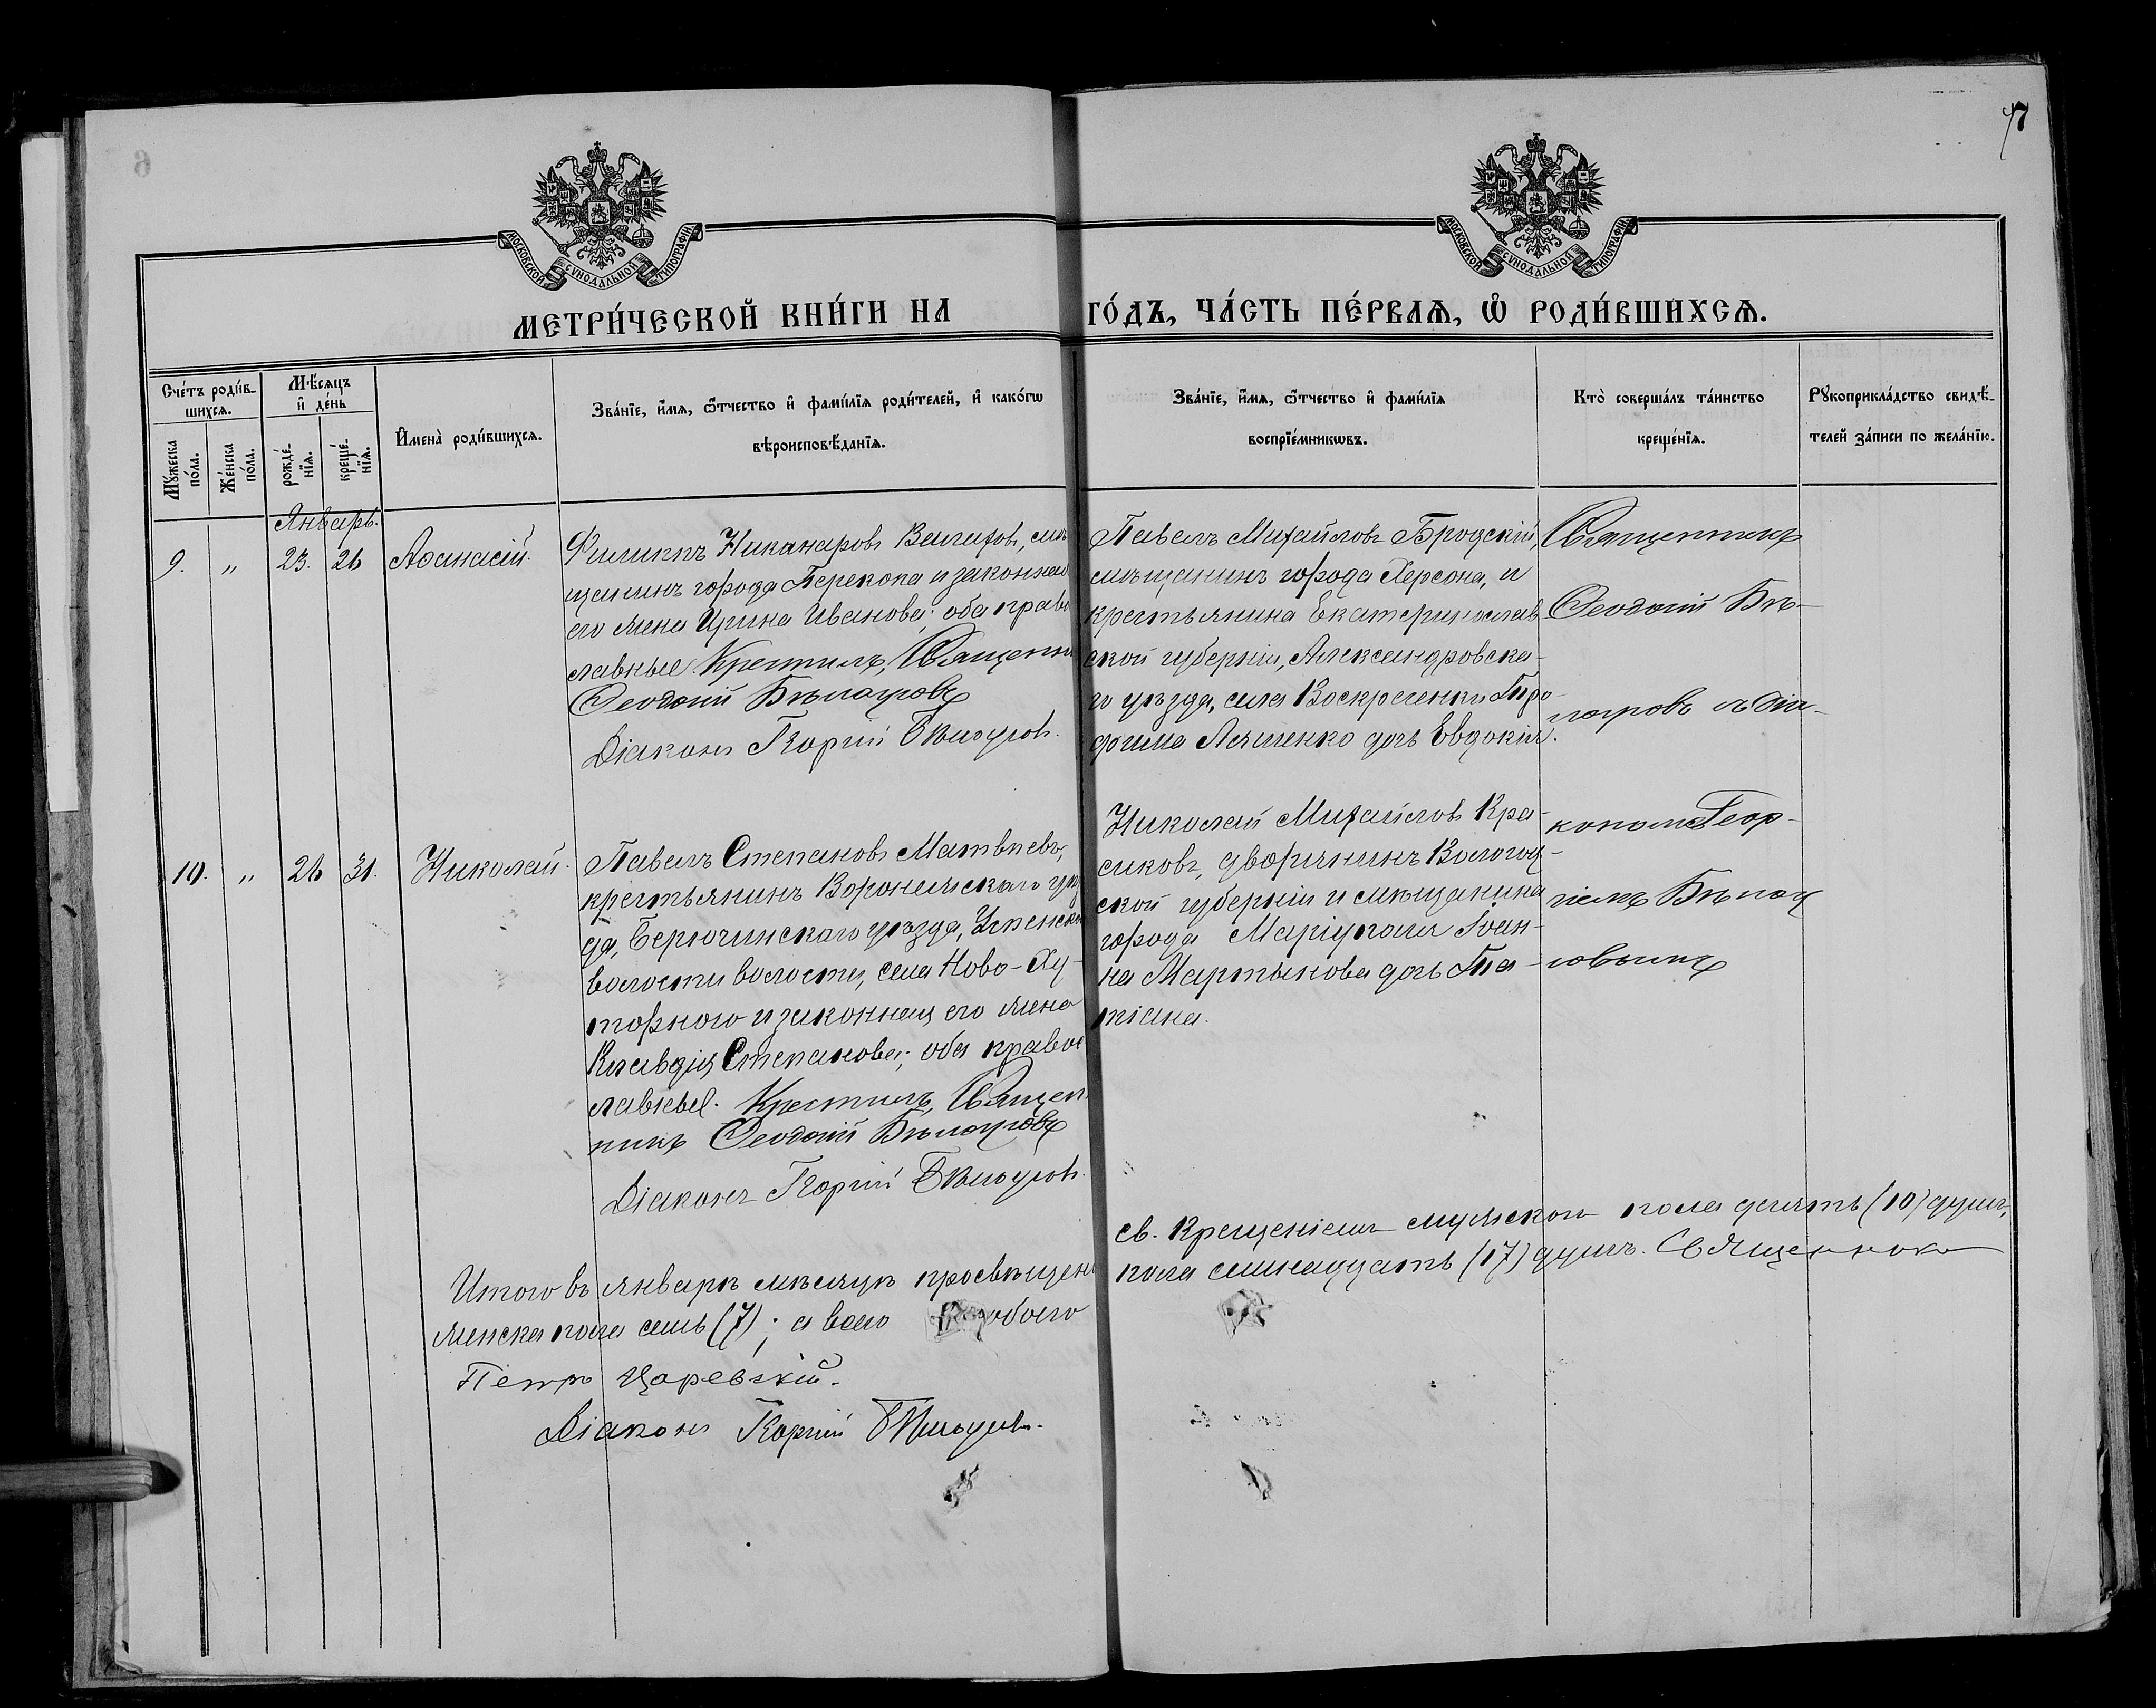 7
МОСКОВСКОЙ СѴНОДАЛЬНОЙ ТИПОГРАФІИ
МОСКОВСКОЙ СѴНОДАЛЬНОЙ ТИПОГРАФІИ
МЕТРИ́ЧЕСКОЙ КНИ́ГИ НА ГО́ДЪ, ЧА́СТЬ ПЕ́РВАѦ, Ѽ РОДИ́ВШИХСѦ.
Сче́тъ роди́в-
шихсѧ.
Мꙋжеска по́ла.
Же́нска по́ла.
Мѣ́сѧцъ
и҆ де́нь
рожде́-
нїѧ.
креще́-
нїѧ.
И҆мена̀ роди́вшихсѧ.
Зва́нїе, и҆́мѧ, ѻ҆́тчество и҆ фами́лїѧ роди́телей, и҆ како́гѡ
вѣроисповѣ́данїѧ.
Зва́нїе, и҆́мѧ, ѻ҆́тчество и҆ фами́лїѧ
воспрїе́мникѡвъ.
Кто̀ соверша́лъ та́инство
креще́нїѧ.
Рꙋкоприкла́дство свидѣ́-
телей за́писи по жела́нїю.
Январь.
9. „ 23. 26 Аѳанасій.
Филиппъ Никаноровъ, мѣ
щанинъ города Перекопа и законная
его жена Ирина Иванова; оба право
славные. Крестилъ, Священни
Ѳеодосій Бѣлоусовъ
Діаконъ Георгій Бѣлоусовъ.
Павелъ Михайловъ Бродскій,
мѣщанинъ города Херсона, и
крестьянина Екатеринослав
ской губерніи, Александровска-
го уѣзда, села Воскресенки Тро-
фима Ляшенко дочь Евдокія.
Священникъ
Ѳеодосій Бѣ-
лоусовъ съ діа-
кономъ Геор-
гіемъ Бѣлоу
совымъ
10. „ 26 31. Николай.
Павелъ Степановъ Матвѣевъ,
крестьянинъ Воронежскаго уѣз
да, Бирючинскаго уѣзда, Успенской
волости волости, села Ново-Ху-
торного и законная его жена
Клавдія Степанова; оба право
славные. Крестилъ, Священ
никъ Ѳеодосій Бѣлоусовъ
Діаконъ Георгій Бѣлоусовъ.
Николай Михайловъ Кра-
сиковъ, дворянинъ Вологод-
ской губерніи и мѣщанина
города Маріуполя Іоан-
на Мартынова дочь Та-
тіана.
Итого въ январѣ мѣсяцѣ просвѣщено св. Крещеніемъ мужскаго пола десять (10) душъ,
женска пола семь (7); а всего обоего пола семнадцать (17) душъ. Священникъ
Петръ Царевскій.
Діаконъ Георгій Бѣлоусовъ.